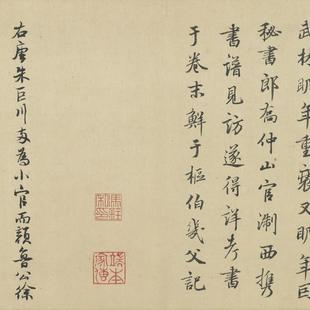 武林明年重裝又明年
秘書郎喬仲山官淛西攜
書譜見訪遂得詳考書
于卷末鮮于樞伯幾父記
右唐朱巨川為小官而顏魯公徐